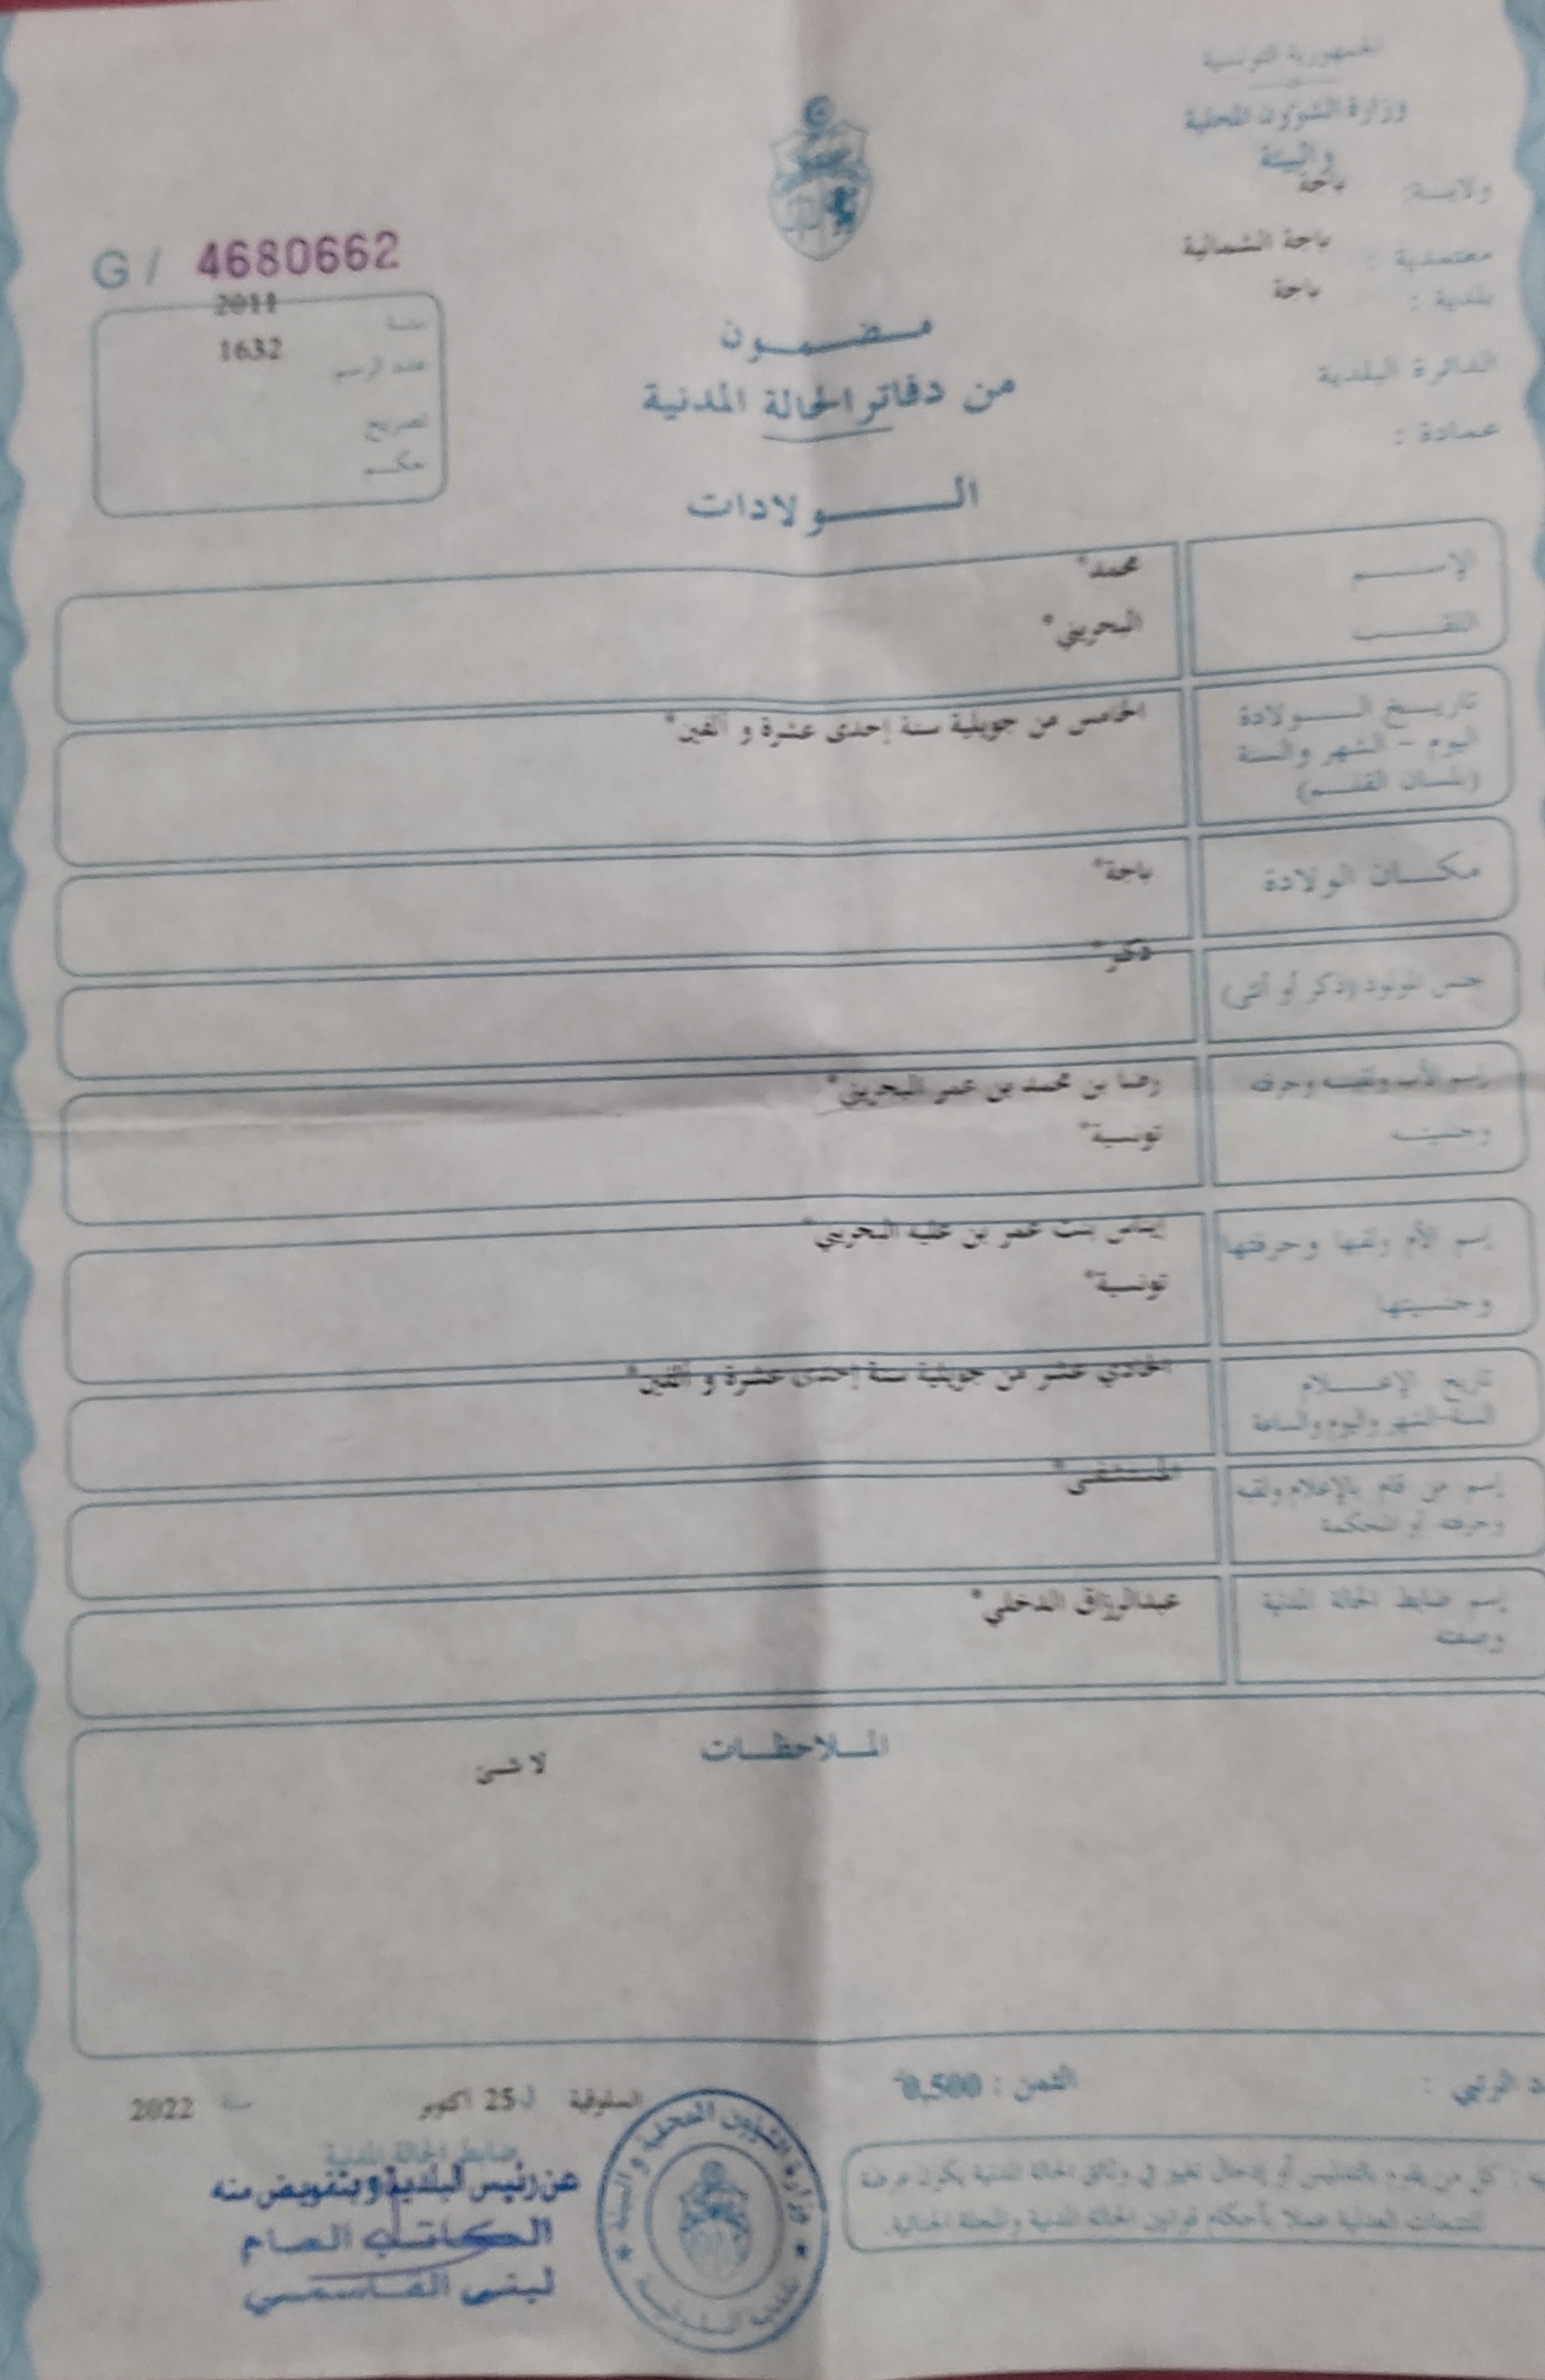 الجمهورية التونسية
وزارة الشؤون المحلية
والبيئة
ولايـة: باجة
معتمدية : باجة الشمالية
بلدية : باجة
الدائرة البلدية
عمادة :
G / 4680662
سنة 2011
عدد الرسم 1632
تصريح
حكم
مضمون
من دفاتر الحالة المدنية
الولادات
الإسم محمد*
اللقب البحريني*
تاريخ الولادة الخامس من جويلية سنة إحدى عشرة و ألفين*
اليوم - الشهر والسنة
(بلسان القلم)
مكان الولادة باجة*
جنس المولود (ذكر أو أنثى) ذكر*
إسم الأب ولقبه وحرفته رضا بن محمد بن عمر البحريني*
وجنسيته تونسية*
إسم الأم ولقبها وحرفتها إيناس بنت عمر بن البحريني*
وجنسيتها تونسية*
تاريخ الإعلام الحادي عشر من جويلية سنة إحدى عشرة و ألفين*
السنة-الشهر واليوم والساعة
إسم من قام بالإعلام ولقبه المستشفى*
وحرفته أو المحكمة
إسم ضابط الحالة المدنية عبدالرزاق الدخلي*
وصفته
الملاحظات
لا شئ
الرتبي :
الثمن : 0,500
السلوقية لـ 25 اكتوبر سنة 2022
ضابط الحالة المدنية
عن رئيس البلدية وبتفويض منه
الكاتب العام
لبنى القاسمي
وزارة الشؤون المحلية والبيئة
بلدية السلوقية
: كل من يقوم بالتدليس أو إدخال تغيير في وثائق الحالة المدنية يكون عرضة
للتتبعات العدلية عملا بأحكام قوانين الحالة المدنية والمجلة الجنائية.